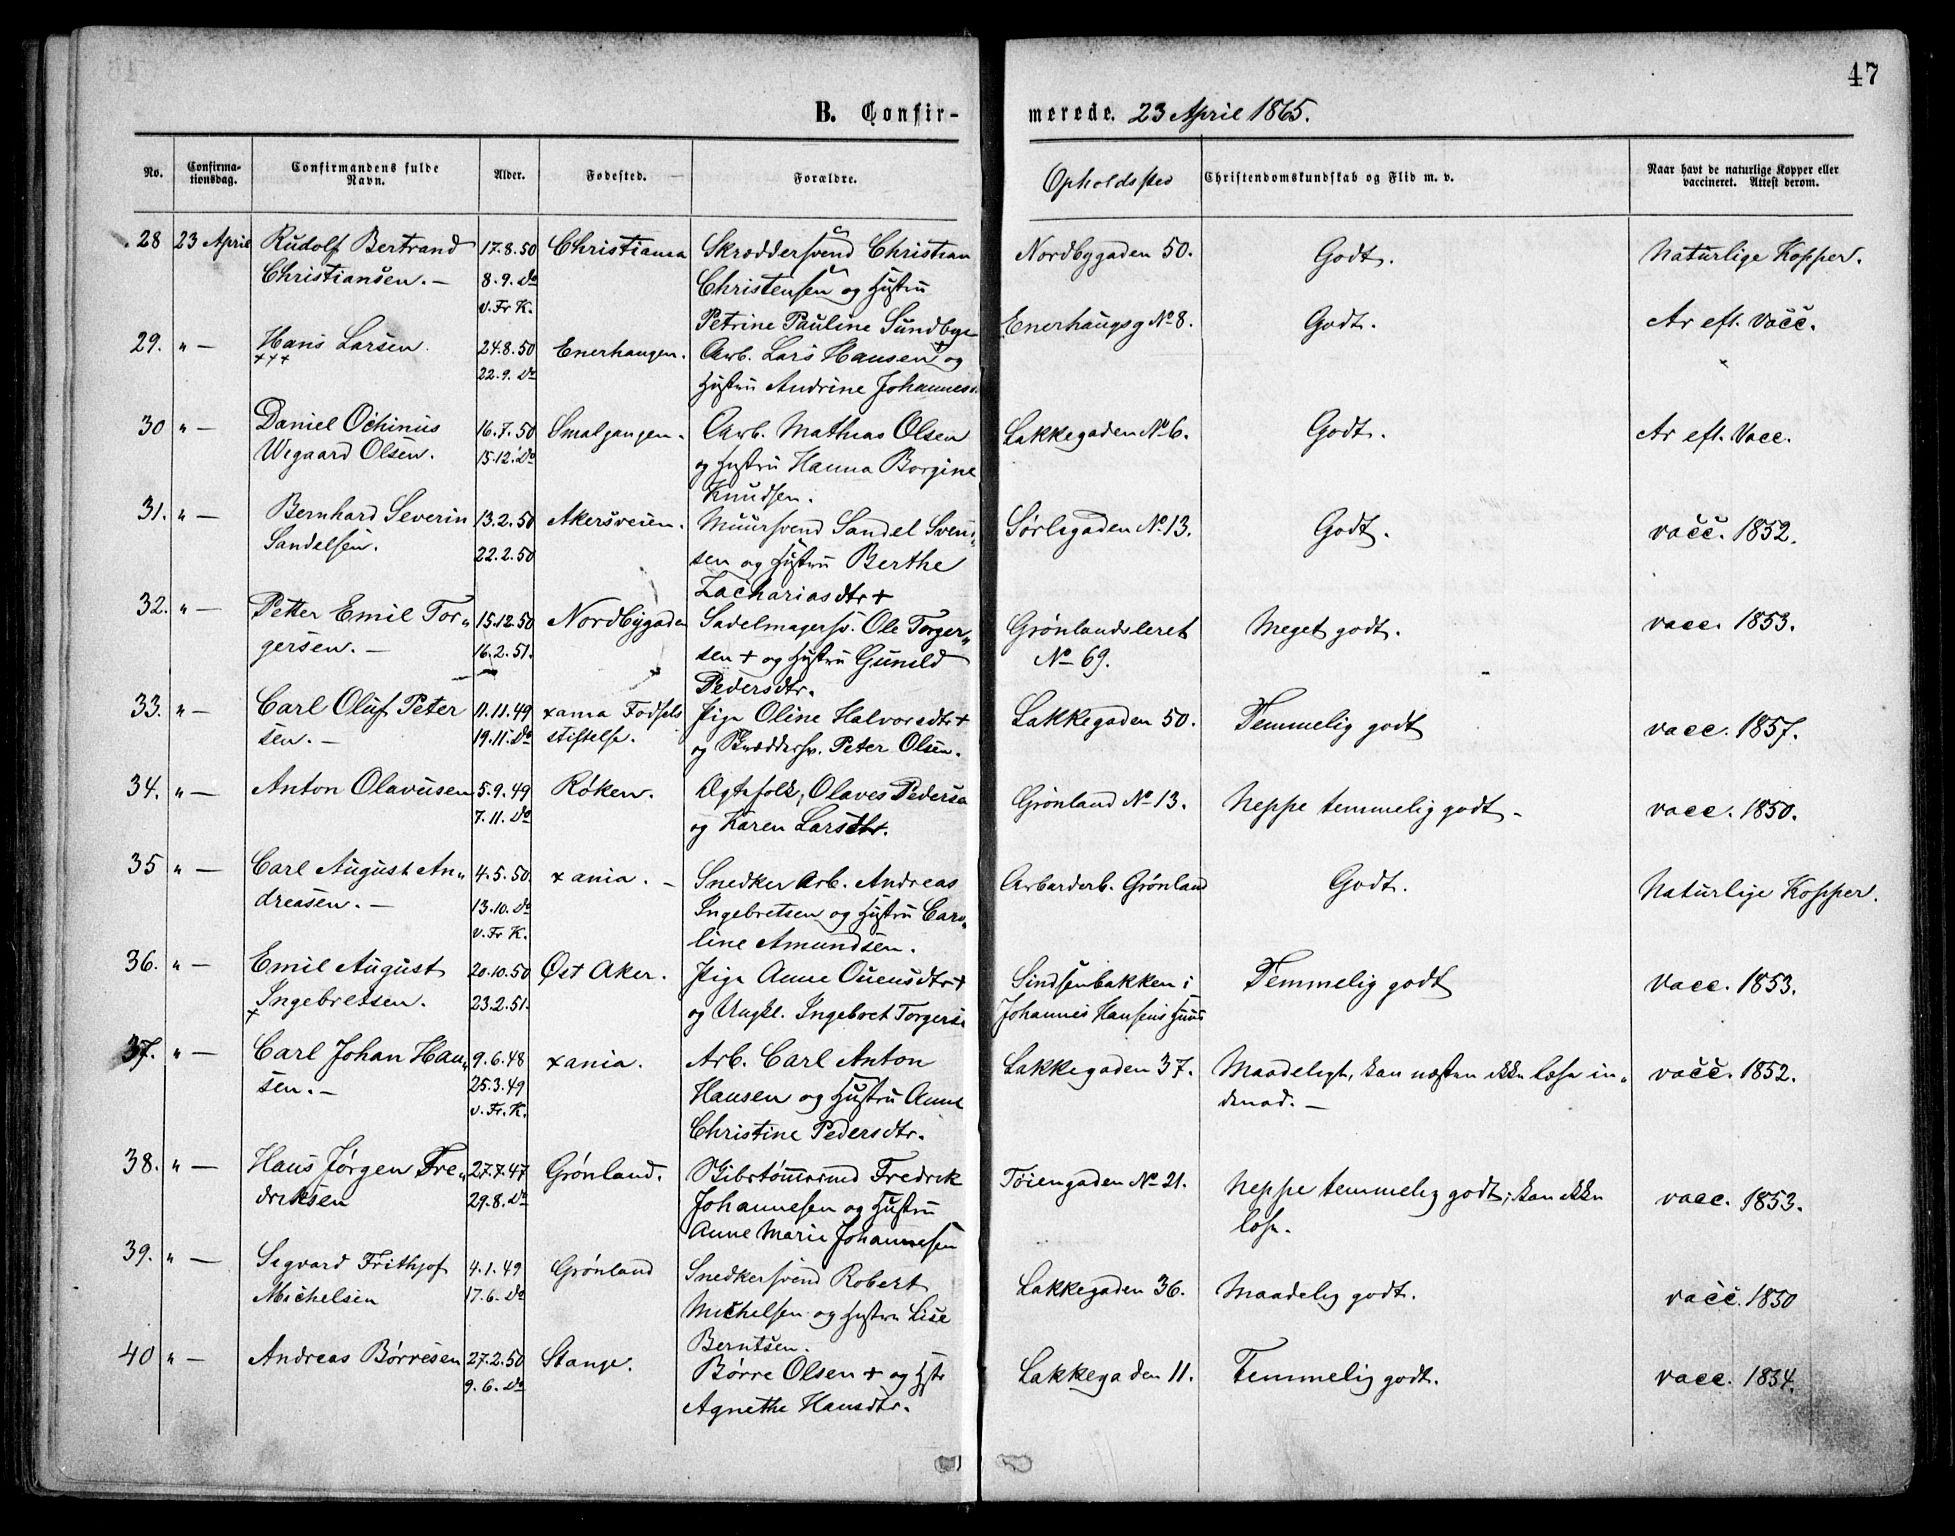 47
B. Confir-
merede. 23 April 1865.
No.
Confirma-
tionsdag.
Confirmandens fulde
Navn.
Alder.
Fødested.
Forældre.
Opholdssted
Christendomskundskab og Flid m. v.
Naar havt de naturlige Kopper eller
vaccineret. Attest derom.
28 23 April Rudolf Bertrand 17.8.50 Christiania Skræddersvend Christian Nordbygaden 50. Godt. Naturlige Kopper.
Christiansen. — 8.9. Do Christensen og Hustru
v. Fr K. Petrine Pauline Sundbye
29. " — Hans Larsen. 24.8.50 Enerhaugen. Arb. Lars Hansen + og Enerhaugsg No 8. Godt. Ar eft. Vacc.
+++ 22.9. Do Hustru Andrine Johannesd.
30 " — Daniel Ochinus 16.7.50 Smalgangen. Arb. Mathias Olsen Lakkegaden No 6. Godt. Ar eft. Vacc.
Wegaard Olsen. 15.12. Do og Hustru Hanna Borgine
Knudsen.
31. " — Bernhard Severin 13.2.50 Akersveien. Muursvend Sandel Svend- Sørlegaden No 13. Godt. vacc. 1852.
Sandelsen. 22.2.50 sen og Hustru Berthe
Zachariasdtr +
32. " — Petter Emil Tor- 15.12.50 Nordbygaden Sadelmagersv. Ole Torger- Grønlandsleret Meget godt. vacc. 1853.
gersen. — 16.2.51. sen + og Hustru Gunild No 69.
Pedersdtr.
33. " — Carl Oluf Peter 11.11.49 xania Fødsels Pige Oline Halvorsdtr + Lakkegaden 50. Temmelig godt vacc. 1857.
sen. — 19.11. Do stiftelse. og Skræddersv. Peter Olsen.
34. " — Anton Olavusen 5.9.49 Røken. Ægtefolk, Olaves Pedersen Grønland No 13. Neppe temmelig godt. vacc. 1850.
7.11. Do og Karen Larsdtr.
35 " — Carl August An- 4.5.50. xania. — Snedker Arb. Andreas Arbarderb. Grønland Godt. Naturlige Kopper.
dreasen. — 13.10. Do Ingebretsen og Hustru Caro-
v. Fr K. line Amundsen.
36. " — Emil August 20.10.50 Øst Aker. Pige Anne Ouensdtr + Sindsenbakken i Temmelig godt vacc. 1853.
+ Ingebretsen. 23.2.51. og Ungkl. Ingebret Torgers. Johannes Hansens Huus
37. " — Carl Johan Han- 9.6.48 xania. Arb. Carl Anton Lakkegaden 37. Maadeligt, kan næsten ikke læse in- vacc. 1852.
sen. — 25.3.49 Hansen og Hustru Anne denad. —
v. Fr. K. Christine Pedersdtr.
38. " — Hans Jørgen Fre- 27.7.47 Grønland. Skibstømmermd Fredrik Tøiengaden No 21. Neppe temmelig godt; kan ikke vacc. 1853.
driksen 29.8. Do Johannesen og Hustru læse.
Anne Marie Johannesen
39. " — Sigvard Frithjof 4.1.49 Grønland Snedkersvend Robert Lakkegaden 36. Maadelig godt. vacc. 1850
Michelsen 17.6. Do Michelsen og Hustru Lise
Berntsen.
40 " — Andreas Børresen 27.2.50 Stange. Børre Olsen + og Hstr Lakkegaden 11. Temmelig godt. vacc. 1854.
9.6. Do Agnethe Hansdtr.